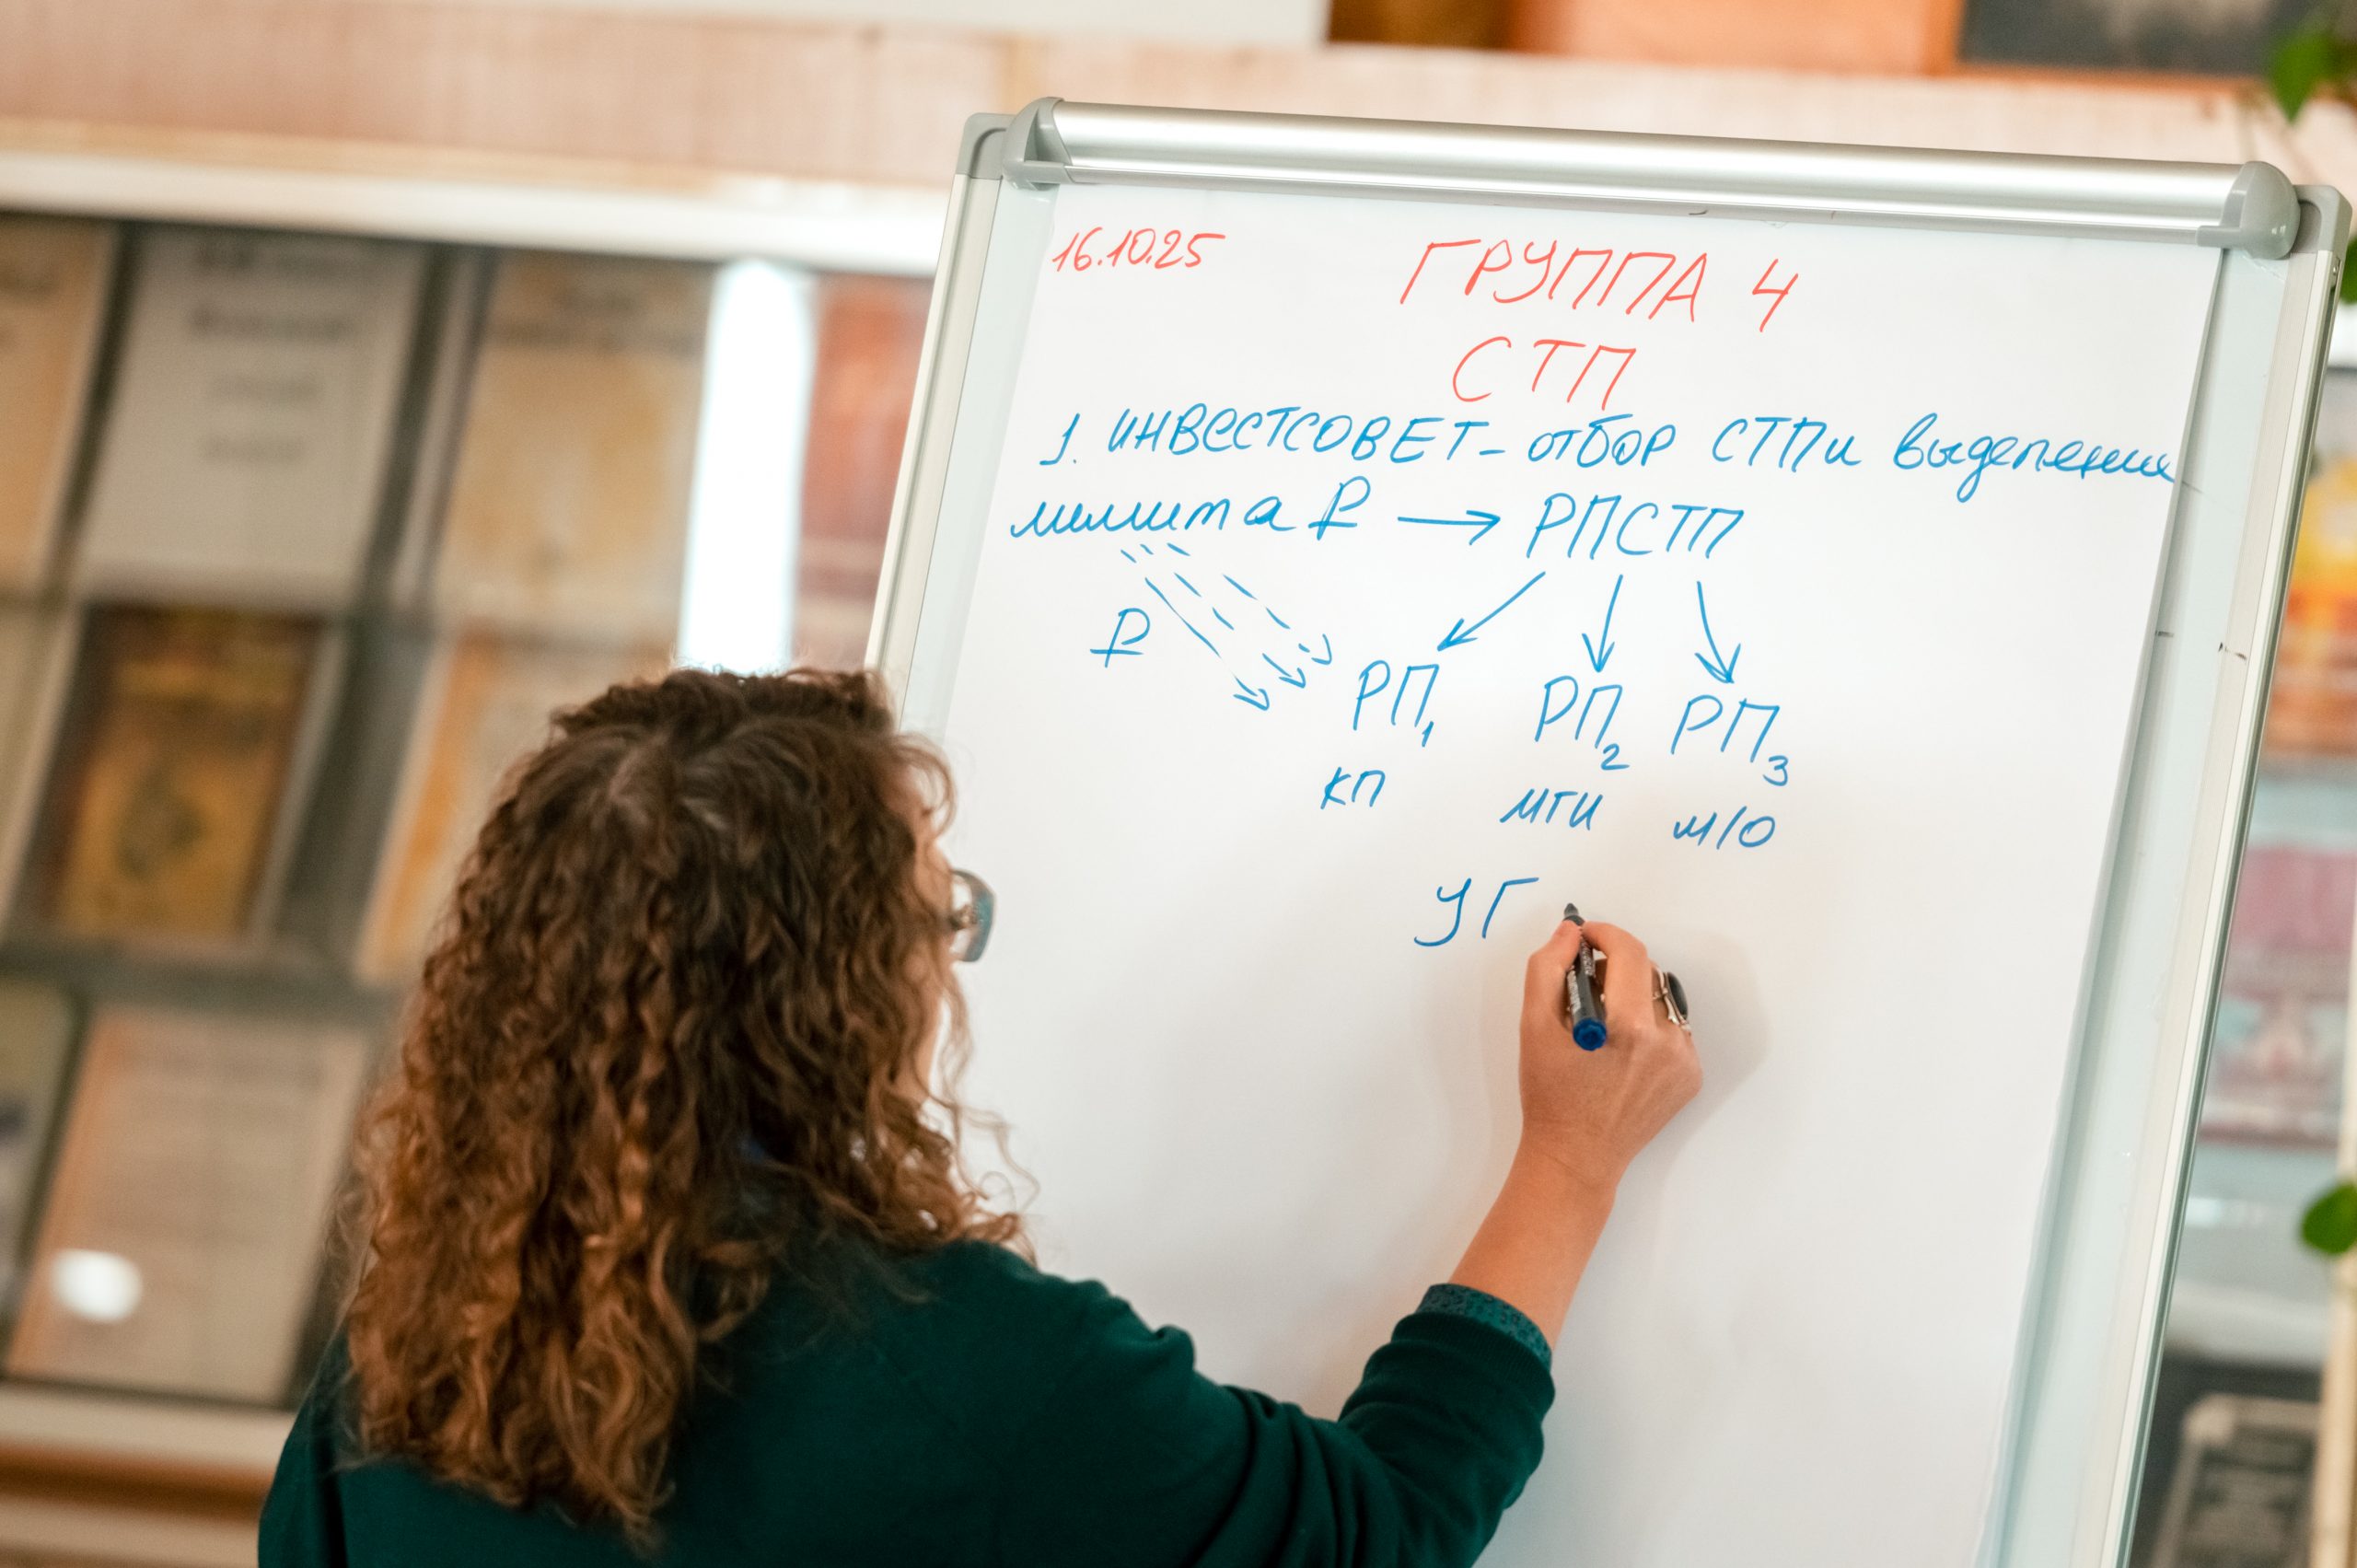 16.10.25
ГРУППА 4
СТП
1. ИНВЕСТСОВЕТ - отбор СТП и выделение
лимита ₽ → РПСТП
₽
РП1 РП2 РП3
КП МГИ М/О
УГ